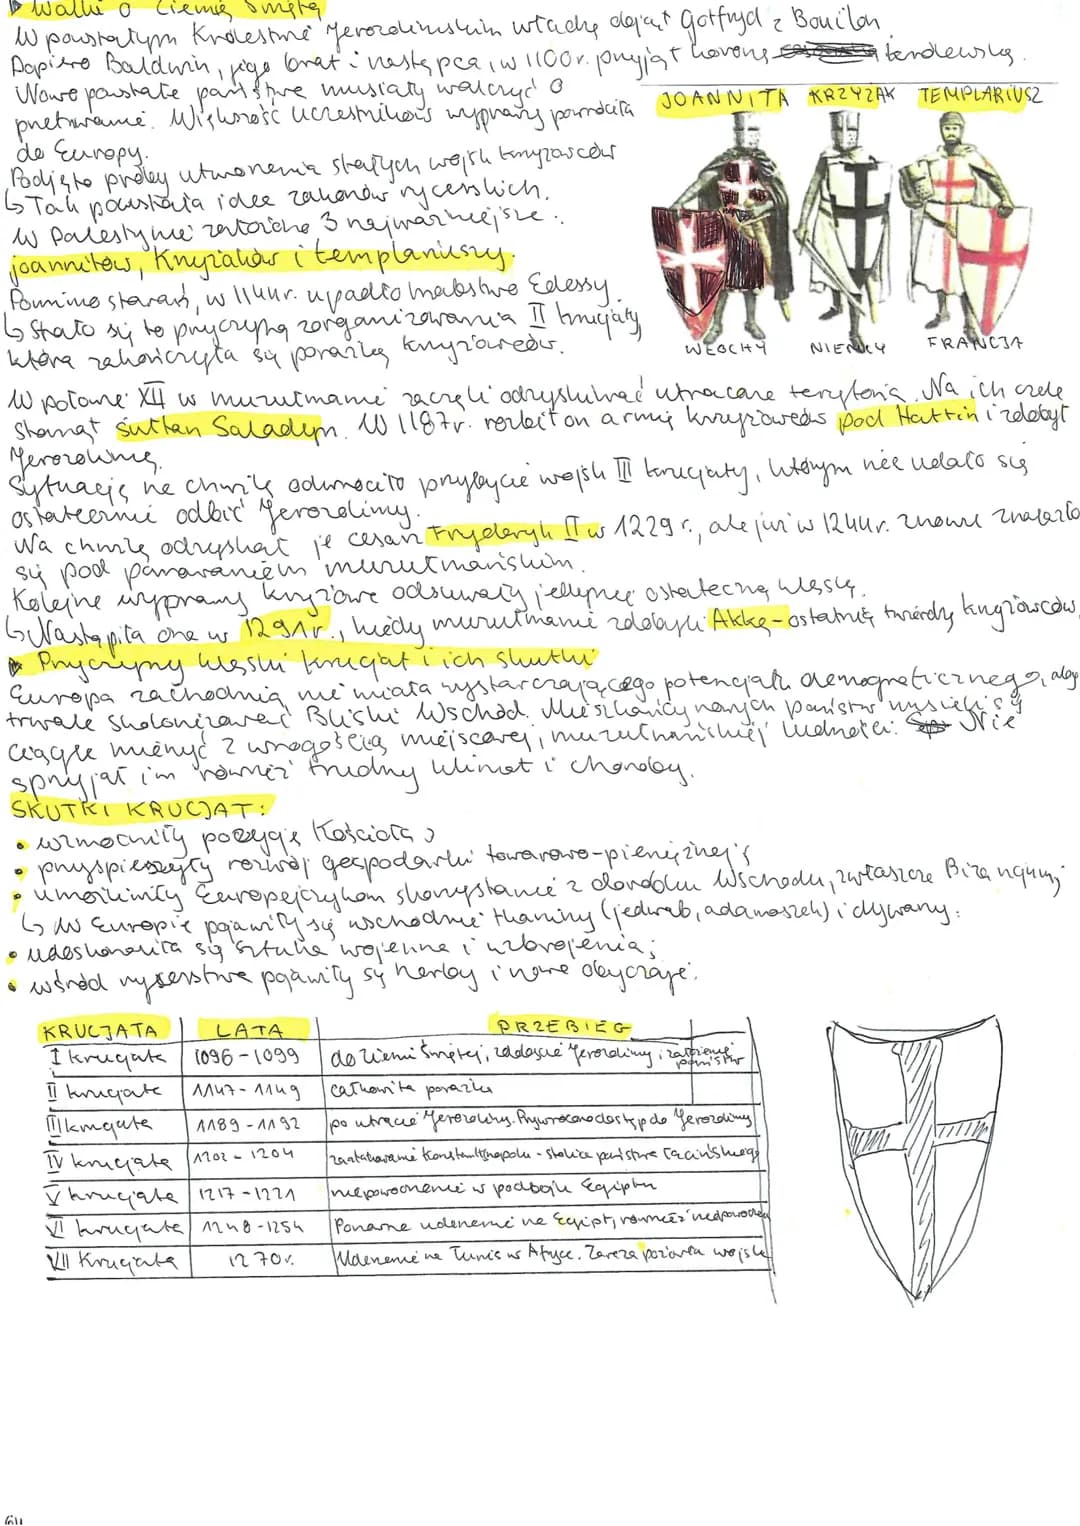 ▶ Walki o Ziemię Świętą
W powstałym Królestwie Jerozolimskim władzę objął Gotfryd z Bouilon.
Dopiero Baldwin, jego brat i następca, w 1100 r. przyjął koronę królewską.
Nowo powstałe państwa musiały walczyć o
przetrwanie. Większość uczestników wyprawy powróciła
do Europy.
Podjęto próby utworzenia stałych wojsk krzyżowców
↳ Tak powstała idea zakonów rycerskich.
W Palestynie założono 3 najważniejsze:
joannitów, Krzyżaków i templariuszy.
Pomimo starań, w 1144r. upadło hrabstwo Edessy.
↳ Stało się to przyczyną zorganizowania II krucjaty,
która zakończyła się porażką krzyżowców.
JOANNITA KRZYŻAK TEMPLARIUSZ
WŁOCHY NIEMCY FRANCJA
W połowie XII w muzułmanie zaczęli odzyskiwać utracone terytoria. Na ich czele
stanął sułtan Saladyn. W 1187r. rozbił on armię krzyżowców pod Hattin i zdobył
Jerozolimę.
Sytuację na chwilę odwróciło przybycie wojsk III krucjaty, którym nie udało się
ostatecznie odbić Jerozolimy.
Na chwilę odzyskał je cesarz Fryderyk II w 1229 r., ale już w 1244r. znowu znalazło
się pod panowaniem muzułmańskim.
Kolejne wyprawy krzyżowe odsuwały jedynie ostateczną klęskę.
↳ Nastąpiła ona w 1291r., kiedy muzułmanie zdobyli Akkę - ostatnią twierdzę krzyżowców.
▶ Przyczyny klęski krucjat i ich skutki
Europa zachodnia nie miała wystarczającego potencjału demograficznego, aby
trwale skolonizować Bliski Wschód. Mieszkańcy nowych państw musieli się
ciągle mierzyć z wrogością miejscowej, muzułmańskiej ludności. Nie
sprzyjał im również trudny klimat i choroby.
SKUTKI KRUCJAT:
• wzmocniły pozycję Kościoła;
• przyspieszyły rozwój gospodarki towarowo-pieniężnej;
• umożliwiły Europejczykom skorzystanie z dorobku Wschodu, zwłaszcza Bizancjum;
↳ W Europie pojawiły się wschodnie tkaniny (jedwab, adamaszek) i dywany.
• udoskonaliła się sztuka wojenna i uzbrojenia;
• wśród rycerstwa pojawiły się herby i nowe obyczaje.
KRUCJATA LATA PRZEBIEG
I krucjata 1096-1099 do Ziemi Świętej, zdobycie Jerozolimy i założenie państw
II krucjata 1147-1149 całkowita porażka
III krucjata 1189-1192 po utracie Jerozolimy. Przywrócono dostęp do Jerozolimy
IV krucjata 1202-1204 zaatakowanie Konstantynopolu - stolica państwa Łacińskiego
V krucjata 1217-1221 niepowodzenie w podboju Egiptu
VI krucjata 1248-1254 Ponowne uderzenie na Egipt, również
VII Krucjata 1270r. Uderzenie na Tunis w Afryce. Zaraza wojska
64